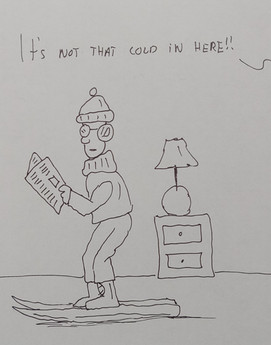 It's NOT THAT COLD IN HERE!!